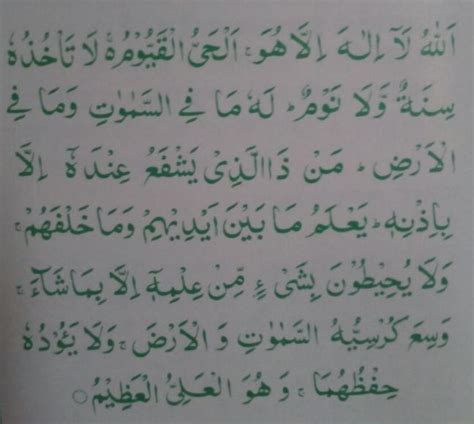 اَللّٰهُ لَآ اِلٰـهَ اِلَّا هُوَۚ اَلْحَیُّ الْقَیُّوْمُ ۚ لَا تَاْخُذُهٗ
سِنَةٌ وَّلَا نَوْمٌ ؕ لَهٗ مَا فِی السَّمٰوٰتِ وَمَا فِی
الْاَرْضِ ؕ مَنْ ذَا الَّذِیْ یَشْفَعُ عِنْدَهٗٓ اِلَّا
بِاِذْنِهٖ ؕ یَعْلَمُ مَا بَیْنَ اَیْدِیْهِمْ وَمَا خَلْفَهُمْ ۚ
وَلَا یُحِیْطُوْنَ بِشَیْءٍ مِّنْ عِلْمِهٖٓ اِلَّا بِمَا شَآءَ ۚ
وَسِعَ كُرْسِیُّهُ السَّمٰوٰتِ وَ الْاَرْضَ ۚ وَلَا یَـُٔوْدُهٗ
حِفْظُهُمَا ۚ وَ هُوَ الْعَلِیُّ الْعَظِیْمُ ○